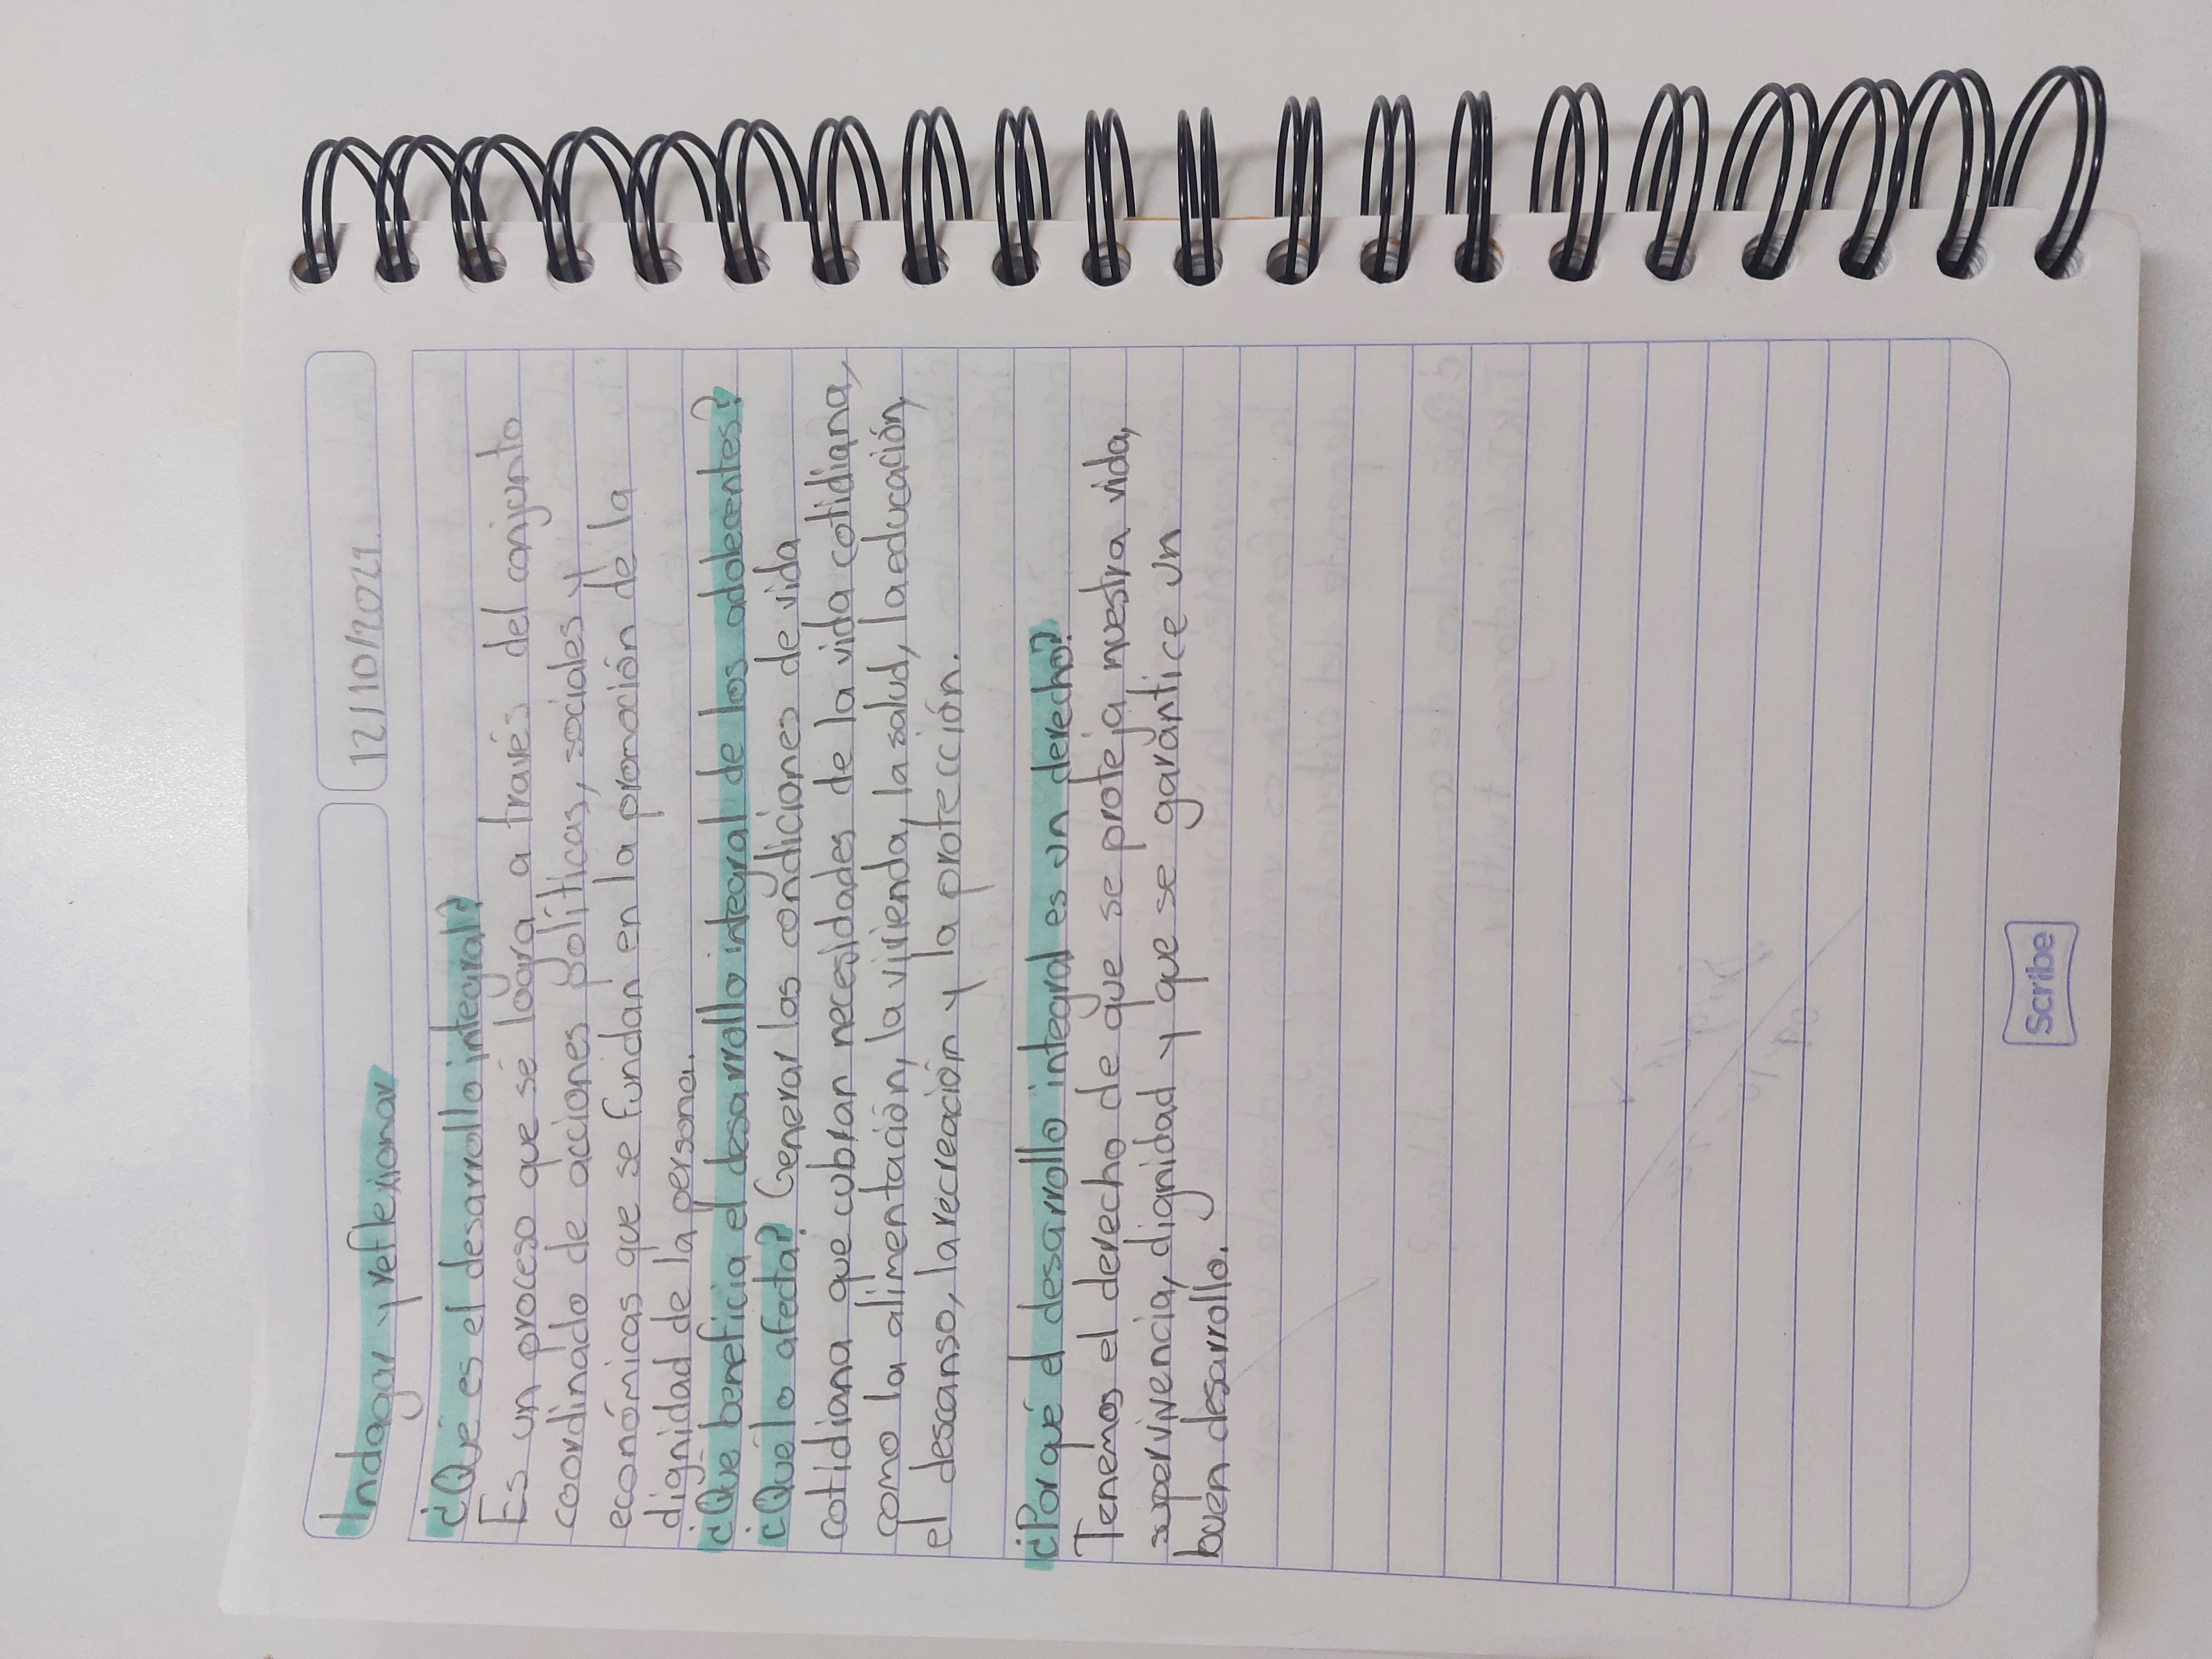 Indagar y reflexionar
12/10/2021.
¿Qué es el desarrollo integral?
Es un proceso que se logra a través del conjunto
coordinado de acciones políticas, sociales y
económicas que se fundan en la promoción de la
dignidad de la persona.
¿Qué beneficia el desarrollo integral de los adolecentes?
¿Qué lo afecta? Generar las condiciones de vida
cotidiana que cubran necesidades de la vida cotidiana,
como la alimentación, la vivienda, la salud, la educación,
el descanso, la recreación y la protección.
¿Por qué el desarrollo integral es un derecho?
Tenemos el derecho de que se proteja nuestra vida,
supervivencia, dignidad y que se garántice un
buen desarrollo.
Scribe